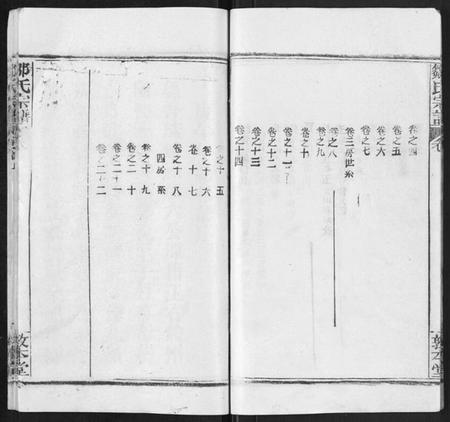 鄒氏宗譜
卷之四
卷之五
卷之六
卷之七
卷三房世系
卷之八
卷之九
卷之十
卷之十一
卷之十二
卷之十三
卷之十四
敦本堂
卷之十五
卷之十六
卷十七
卷之十八
四房系
卷之十九
卷之二十
卷之二十一
卷之二十二
鄒氏宗譜
敦本堂